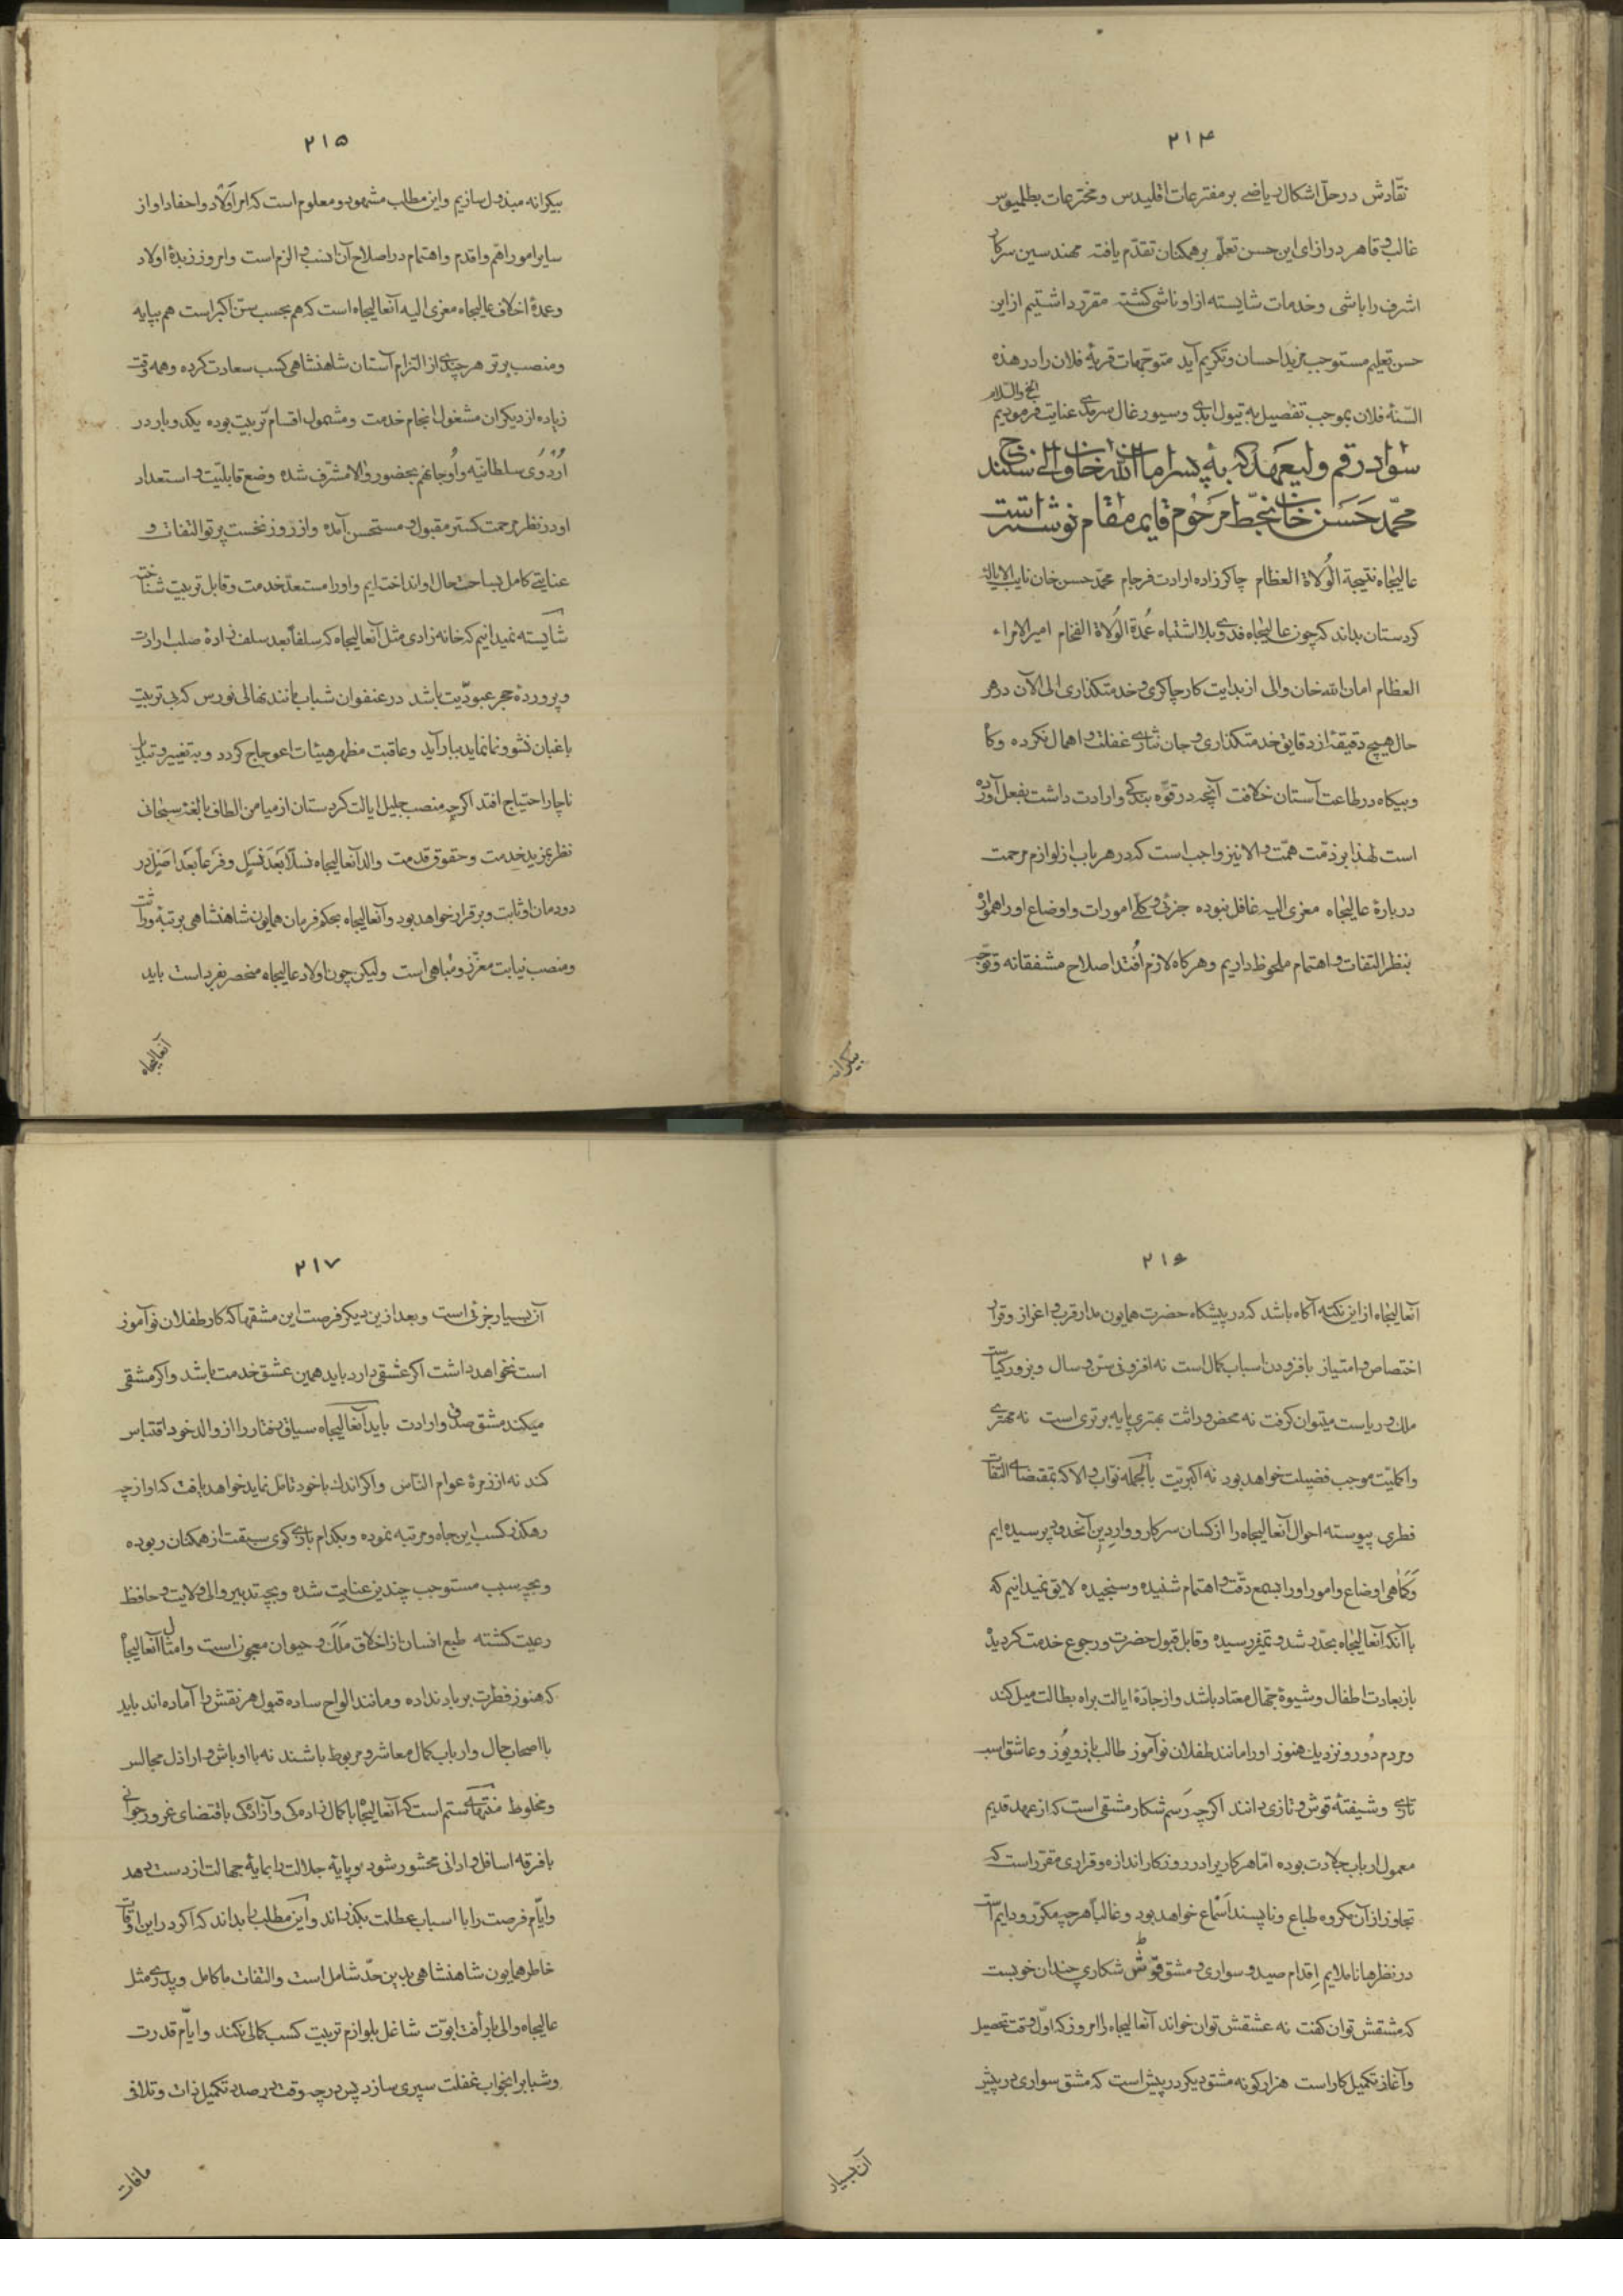 ۲۱۴
نقّادش در حلّ اشکال ریاضی بر مفترعات اقلیدس و مخترعات بطلمیوس
غالب و قاهر در ازای این حسن تعلّم بر همکنان تقدّم یافته مهندسین سرکار
اشرف را باشی و خدمات شایسته از او ناشی کشته مقرّر داشتیم از این
حسن تعلیم مستوجب مزید احسان و تکریم آید متوجّهات قریهٔ فلان را در هذه
السّنهٔ فلان بموجب تفصیل به تیول ابدی و سیورغال سرمدی عنایت فرمودیم الخ والسّلام
سواد رقم ولیعهد که به پسر امان الله خان والی سنندج
محمّد حسن خان بخطّ مرحوم قایم مقام نوشته است
عالیجاه نتیجة الوُلاة العظام چاکرزاده ارادت فرجام محمّد حسن خان نایب الایاله
کردستان بداند که چون عالیجاه فدوی بلا اشتباه عُمدة الوُلاة الفخام امیر الامراء
العظام امان الله خان والی از بدایت کار چاکری و خدمتکذاری الی الآن در هر
حال هیچ دقیقهٔ از دقایق خدمتکذاری و جان نثاری غفلت و اهمال نکرده و کاه
و بیکاه در طاعت آستان خلافت آنچه در قوّه بندکی و ارادت داشت بفعل آورده
است لهذا بر ذمّت همّت والا نیز واجب است که در هر باب از لوازم مرحمت
دربارهٔ عالیجاه معزی الیه غافل نبوده جزئی و کلّی امورات و اوضاع او را همواره
بنظر التفات و اهتمام ملحوظ داریم و هر کاه لازم اُفتد اصلاح مشفقانه و توجّه
بیکرانه
۲۱۵
بیکرانه مبذول سازیم و این مطلب مشهود و معلوم است که امر اَولاد و احفاد او از
سایر امور اهّم و اقدم و اهتمام در اصلاح آن انسب و الزم است و امروز زبدهٔ اولاد
و عمدهٔ اخلاف عالیجاه معزی الیه آنعالیجاه است که هم بحسب سنّ اکبر است هم بپایه
و منصب برتر هر چندی از التزام آستان شاهنشاهی کسب سعادت کرده و همه وقت
زیاده از دیکران مشغول انجام خدمت و مشمول اقسام تربیت بوده یکدو بار در
اُردوی سلطانیّه و اُوجان هم بحضور والا مشرّف شده وضع قابلیّت و استعداد
او در نظر مرحمت کستر مقبول و مستحسن آمده و از روز نخست پرتو التفات و
عنایتی کامل بساحت حال او انداخته ایم و او را مستعدّ خدمت و قابل تربیت شناخته
شایسته نمیدانیم که خانه زادی مثل آنعالیجاه که سلفاً بعد سلف زادهٔ صلب ارادت
و پروردهٔ حجر عبودیّت باشد در عنفوان شباب مانند نهالی نورس که بی تربیت
باغبان نشو و نما نماید ببار آید و عاقبت مظهر هیئات اعوجاج کردد و به تغییر و تبدیل
ناچار احتیاج افتد اکرچه منصب جلیل ایالت کردستان از میامن الطاف بالغهٔ سبحانی
نظر بمزید خدمت و حقوق قدمت والد آنعالیجاه نسلاً بَعَد نَسلٍ و فَرعاً بَعَد اَصلٍ در
دودمان او ثابت و برقرار خواهد بود و آنعالیجاه بحکم فرمان همایون شاهنشاهی برتبهٔ وراثت
و منصب نیابت معزّز و مباهی است ولیکن چون اولاد عالیجاه منحصر بفرد است باید
آنعالیجاه
۲۱۶
آنعالیجاه از این نکته آکاه باشد که در پیشکاه حضرت همایون مدار قرب و اعزاز و قرار
اختصاص و امتیاز بافزودن اسباب کمال است نه افزونی سنّ و سال و بزور کیاست
ملک و ریاست میتوان کرفت نه محض وراثت بهتری پایه برتری است نه مهتری
و اکملیّت موجب فضیلت خواهد بود نه اکبریّت بالجمله نوّاب والا که بمقتضای التفات
فطری پیوسته احوال آنعالیجاه را از کسان سرکار و واردین آنحدود پرسیده ایم
و کماهی اوضاع و امور او را بسمع دقّت و اهتمام شنیده و سنجیده لایق نمیدانیم که
با آنکه آنعالیجاه بحدّ رشد و تمیز رسیده و قابل قبول حضرت و رجوع خدمت کردیده
باز بعادت اطفال و شیوهٔ جهّال معتاد باشد و از جادّهٔ ایالت براه بطالت میل کند
و مردم دُور و نزدیک هنوز او را مانند طفلان نوآموز طالب باز و یُوز و عاشق اسب
تازی و شیفتهٔ قوش و تازی دانند اکرچه رَسم شکار مشقی است که از عهد قدیم
معمول ارباب جلادت بوده امّا هر کاریرا در روزکار اندازه و قراری مقرّر است که
تجاوز از آن مکروه طباع و ناپسند اَسماع خواهد بود و غالباً هر چه مکرّر و دایم است
در نظرها ناملایم اِقدام صید و سواری و مشق قوش شکاری چندان خوبست
که مشقش توان کفت نه عشقش توان خواند آنعالیجاه را امروز که اوّل وقت تحصیل
و آغاز تکمیل کار است هزار کونه مشق دیکر در پیش است که مشق سواری در پیش
آن بسیار
۲۱۷
آن بسیار جزئی است و بعد ازین دیکر فرصت این مشقها که کار طفلان نوآموز
است نخواهد داشت اکر عشقی دارد باید همین عشق خدمت باشد و اکر مشقی
میکند مشق صدق و ارادت باید آنعالیجاه سیاق رفتار را از والد خود اقتباس
کند نه از زمرهٔ عوام النّاس و اکر اندک با خود تامّل نماید خواهد یافت که او از چه
رهکذر کسب این جاه و مرتبه نموده و بکدام بازی کوی سبقت از همکنان ربوده
و بچه سبب مستوجب چندین عنایت شده و بچه تدبیر والی ولایت و حافظ
رعیّت کشته طبع انسان از اخلاق مَلَک و حیوان معجون است و امثال آنعالیجاه
که هنوز فطرت بر باد نداده و مانند الواح ساده قبول هر نقش را آماده اند باید
با اصحاب حال و ارباب کمال معاشر و مربوط باشند نه با اوباش و اراذل مجالس
و مخلوط منتهای ستم است که آنعالیجاه با کمال زادمکی و آزادکی باقتضای غرور جوانی
با فرقه اسافل و ادانی محشور شود و پایهٔ جلالت را بمایهٔ جهالت از دست دهد
و ایّام فرصت را با اسباب عطلت بکذراند و این مطلب را بداند که اکر در این اوقات
خاطر همایون شاهنشاهی بدین حدّ شامل است و التفات ما کامل و پدری مثل
عالیجاه والی با رأفت ابوّت شاغل بلوازم تربیت کسب کمالی نکند و ایّام قدرت
و شباب را بخواب غفلت سپری سازد پس در چه وقت در صدد تکمیل ذات و تلافی
مافات